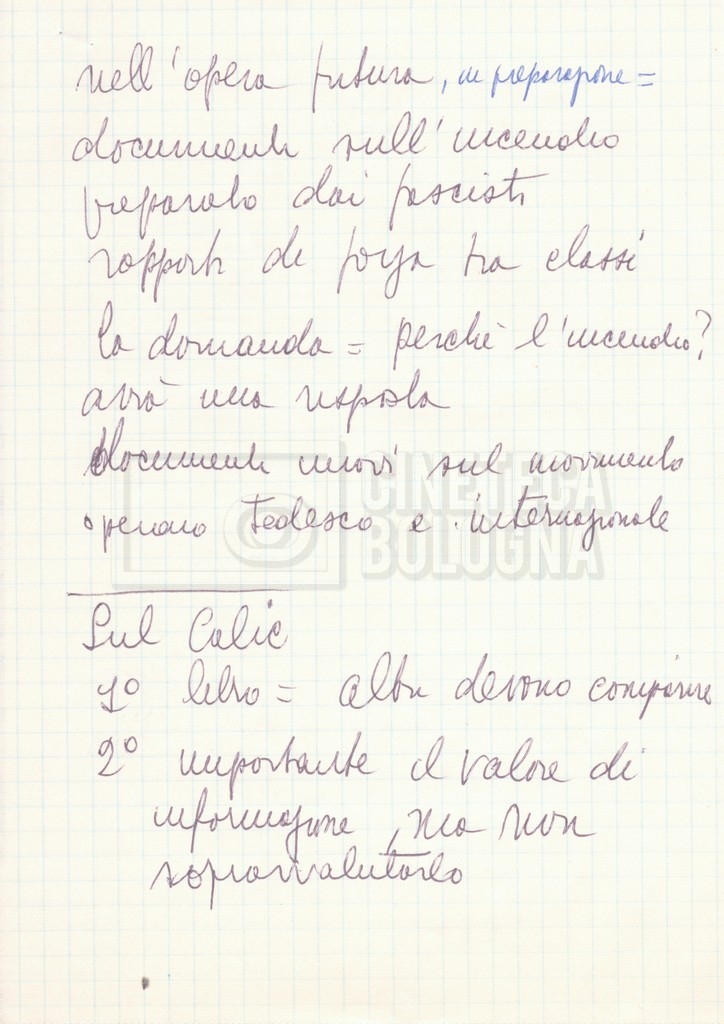 nell'opera futura, in preparazione =
documenti sull'incendio
preparato dai fascisti
rapporti di forza tra classi
la domanda = perchè l'incendio?
avrà una risposta
documenti nuovi sul movimento
operaio tedesco e internazionale
CINETECA
BOLOGNA
Sul Calic
1º libro = altri devono comparire
2º importante il valore di
informazione, ma non
sopravvalutarlo